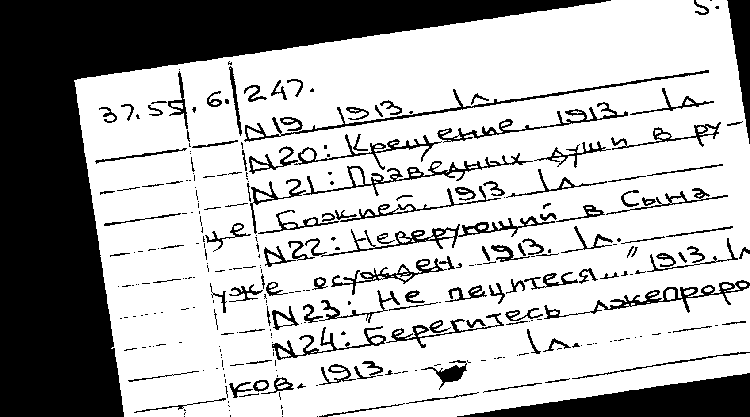 5.
37.55.6.247.
N19. 1913. 1л.
N20: Крещение. 1913. 1л
N21: Праведных души в ру-
це Божией. 1913. 1л.
N22: Неверующий в Сына
уже осужден. 1913. 1л.
N23: „Не пецитеся...." 1913. 1л
N24: Берегитесь лжепроро
ков. 1913. 1л.